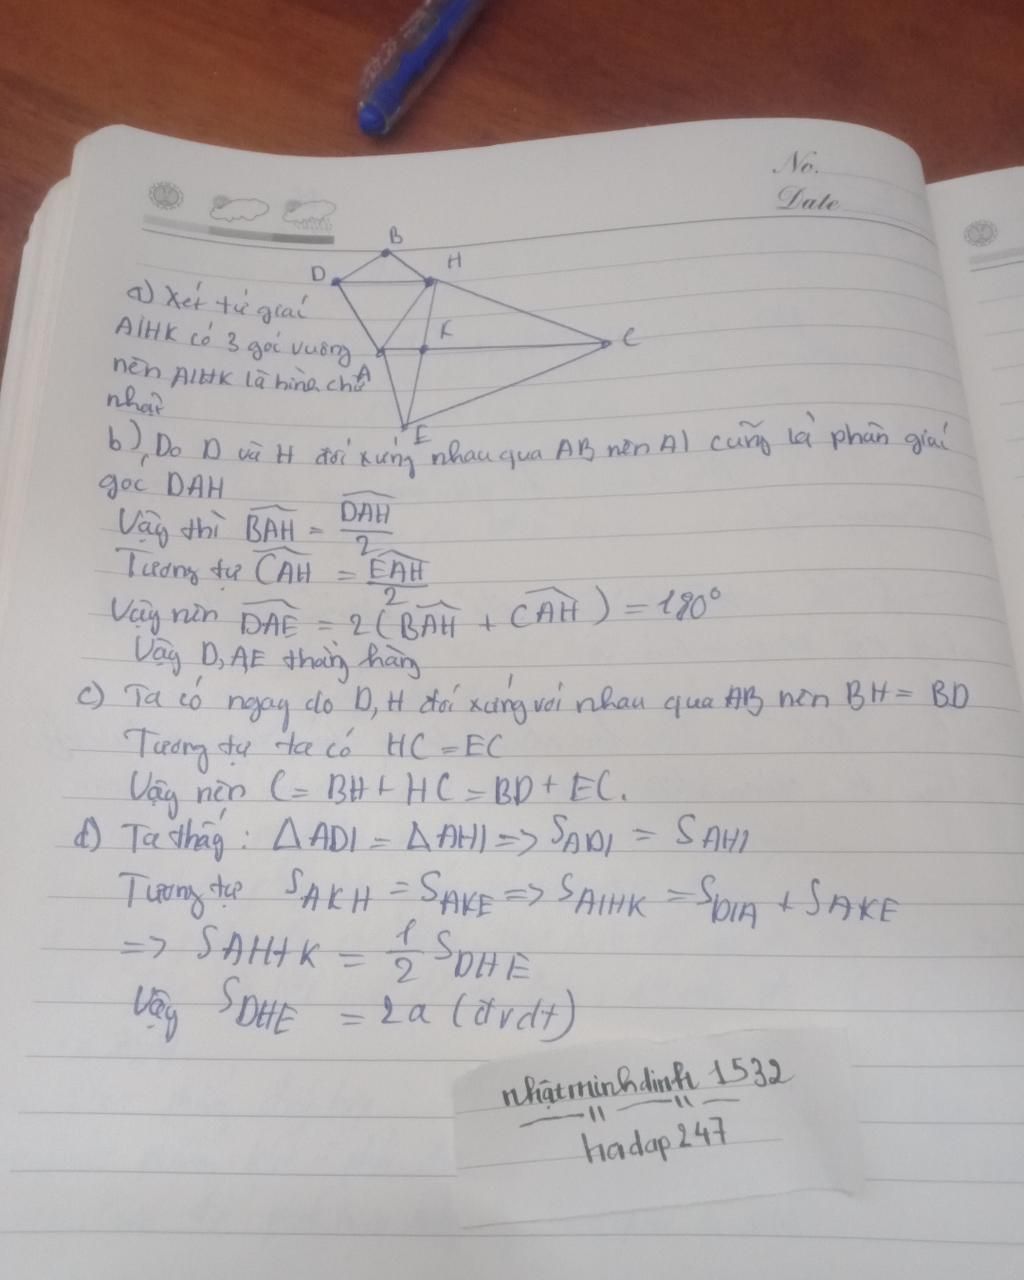 No.
Date
B
D
H
K
C
A
E
a) Xét tứ giác
AIHK có 3 góc vuông
nên AIHK là hình chữ
nhật
b) Do D và H đối xứng nhau qua AB nên AI cũng là phân giác
góc DAH
Vậy thì BAH = DAH/2
Tương tự CAH = EAH/2
Vậy nên DAE = 2(BAH + CAH) = 180°
Vậy D, AE thẳng hàng
c) Ta có ngay do D, H đối xứng với nhau qua AB nên BH = BD
Tương tự ta có HC = EC
Vậy nên C = BH + HC = BD + EC.
d) Ta thấy: ΔADI = ΔAHI => S_ADI = S_AHI
Tương tự S_AKH = S_AKE => S_AIHK = S_DIA + S_AKE
=> S_AIHK = 1/2 S_DHE
Vậy S_DHE = 2a (đvdt)
nhậtminhdinh 1532
hadap247